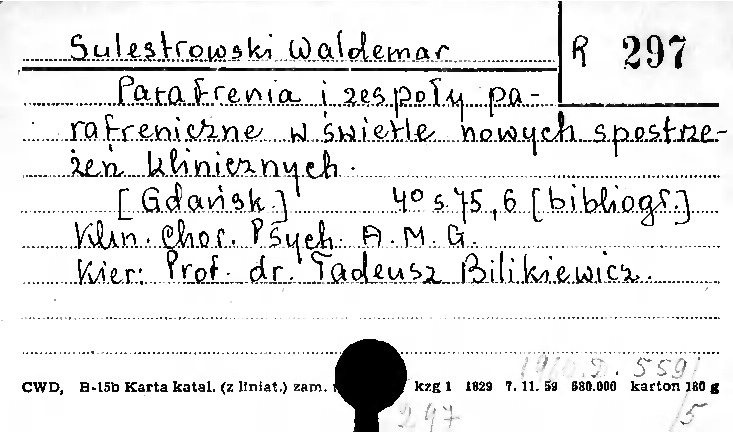 Sulestrowski Waldemar R 297
Parafrenia i zespoły pa-
rafreniczne w świetle nowych spostrze-
żeń klinicznych.
[Gdańsk.] 4° s. 75, 6 [bibliogr.]
Klin. Chor. Psych. A. M. G.
Kier: Prof. dr. Tadeusz Bilikiewicz.
1960.D. 559/
CWD, B-15b Karta katal. (z liniat.) zam. kzg 1 1829 7. 11. 59 680.000 karton 180 g
247 /5